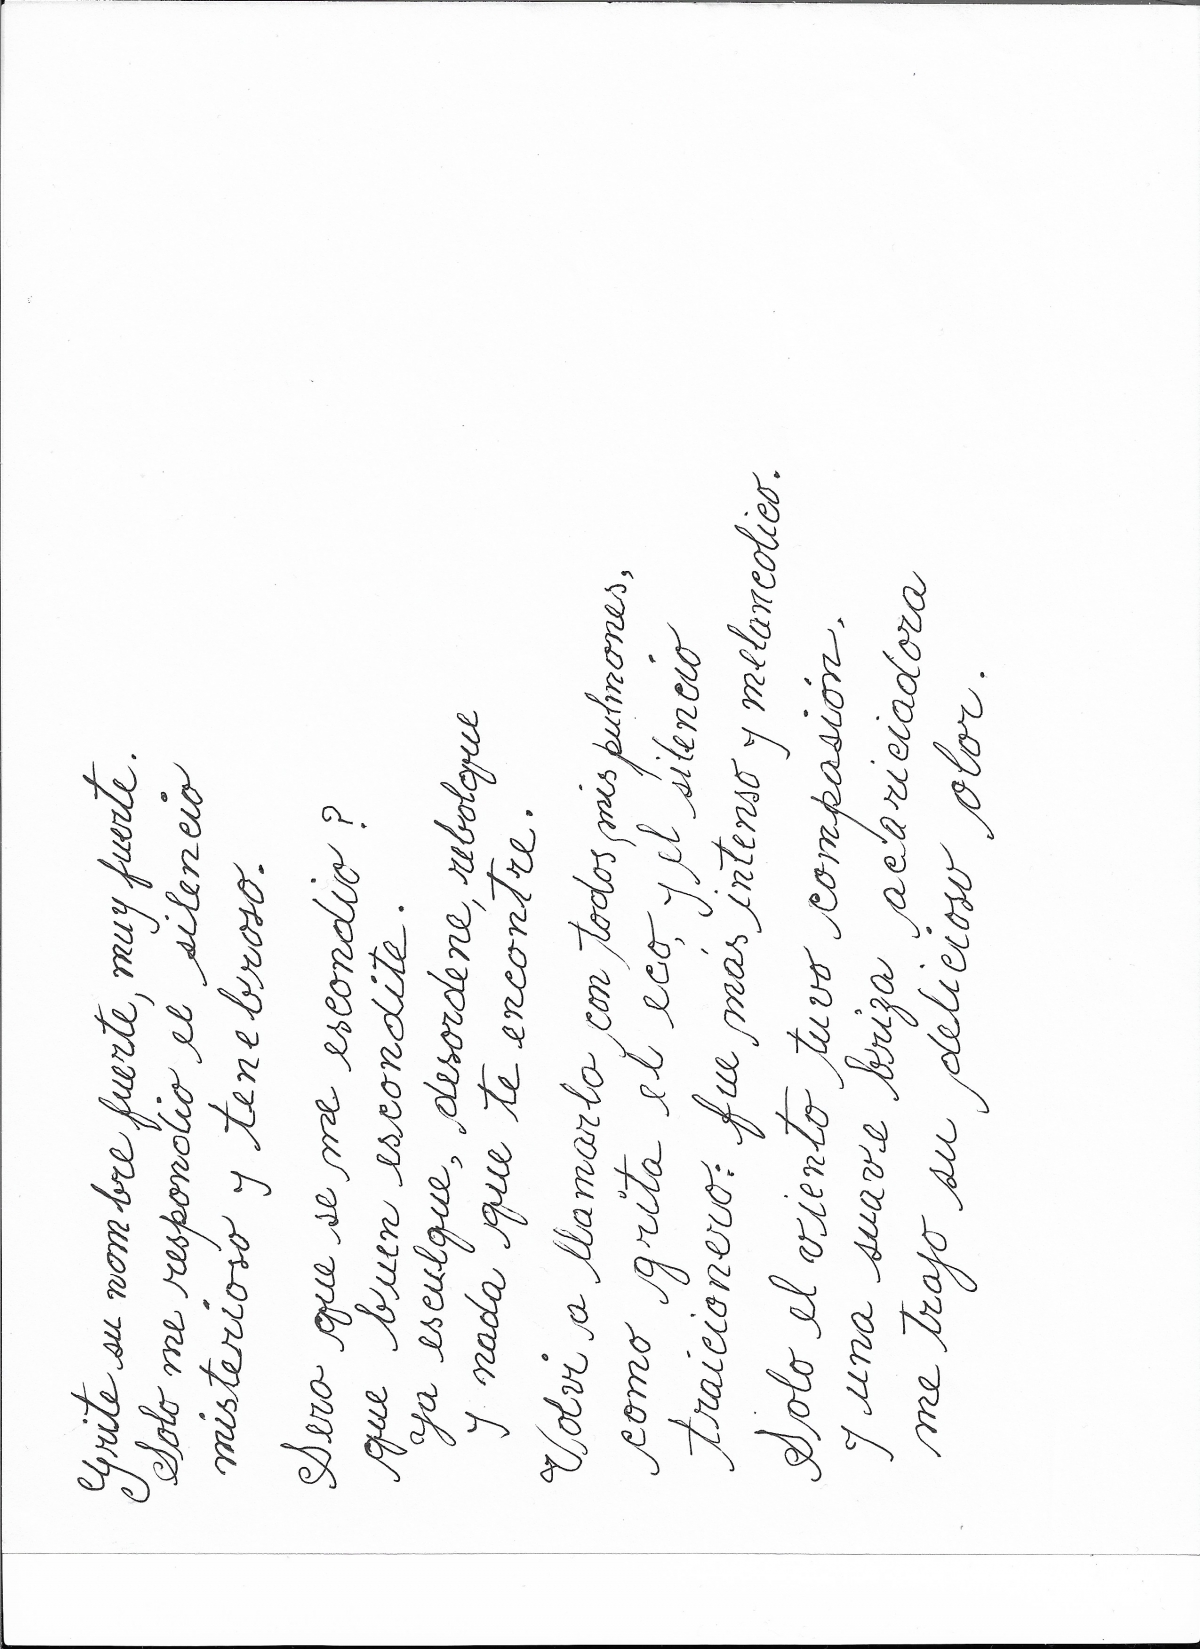 Grite su nombre fuerte, muy fuerte.
Solo me respondio el silencio
misterioso y tenebroso.
Sera que se me escondio?
que buen escondite.
Ya esculque, desordene, rebolque
y nada que te encontre.
Volvi a llamarlo con todos mis pulmones,
como grita el eco, y el silencio
traicionero: fue más intenso y melancolico.
Solo el viento tuvo compasión,
y una suave briza acariciadora
me trajo su delicioso olor.